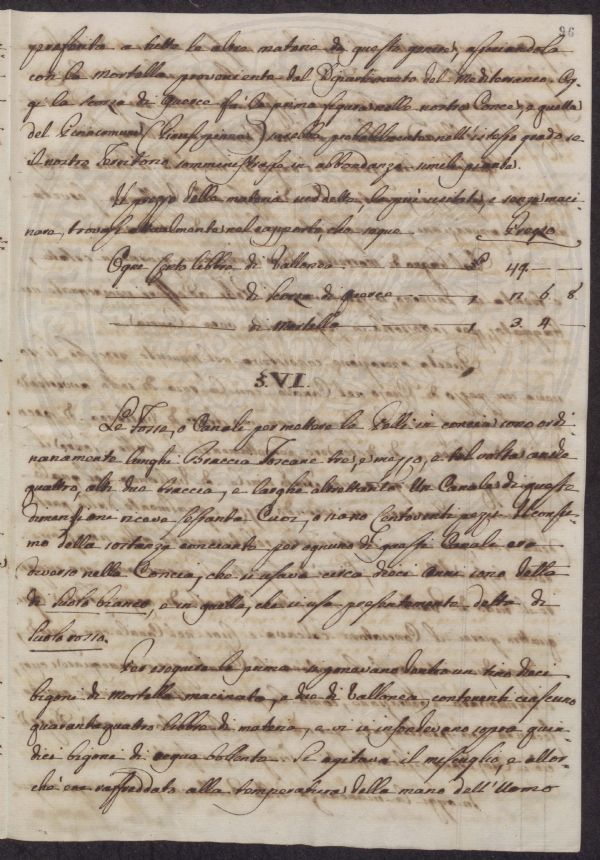 26
preferita a tutte le altre materie di questo genere, associandola
con la mortella proveniente dal Dipartimento del Mediterraneo. Og-
gi la scorza di querce fa la prima figura nelle nostre Conce, e quella
del probabilmente nell'istesso grado se
il nostro Territorio somministrasse in abbondanza simile pianta.
Il prezzo della materia suddetta, la più usitata, e senza maci-
nare, trovasi attualmente nel rapporto, che segue. Prezzo
Ogni Cento libbre di Vallonea 49.
di scorza di querce 6 8
di Mortella 3. 4
§. VI.
Le Fosse, o Canali per mettere le Pelli in concia sono ordi-
nariamente lunghi Braccia Toscane tre, e mezzo, e tal volta anche
quattro, alti due braccia, e larghi altrettanto. Un Canale di queste
dimensioni riceve sessanta Cuoi, o siano Centoventi pezzi. Il consu-
mo della sostanza conciante per ognuno di questi Canali era
diverso nella Concia, che si usava circa dieci anni sono detta
di Suolo bianco, e in quella, che si usa presentemente detta di
Suolo rosso.
Per eseguire la prima si ponevano dentro un tino dieci
bigoni di mortella macinata, e due di Vallonea, contenenti ciascuno
quarantaquattro libbre di materia, e vi si infondevano sopra quin-
dici bigoni di acqua bollente. Si agitava il miscuglio, e allor-
chè era raffreddato alla temperatura della mano dell'Uomo